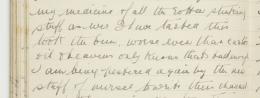 my medicine of all the rotten stinking
stuff as ever I have tasted this
took the bun, worse even than castor
oil & heavens only knows that's bad enough
I am being pestered again by the new
staff of nurses, besides their